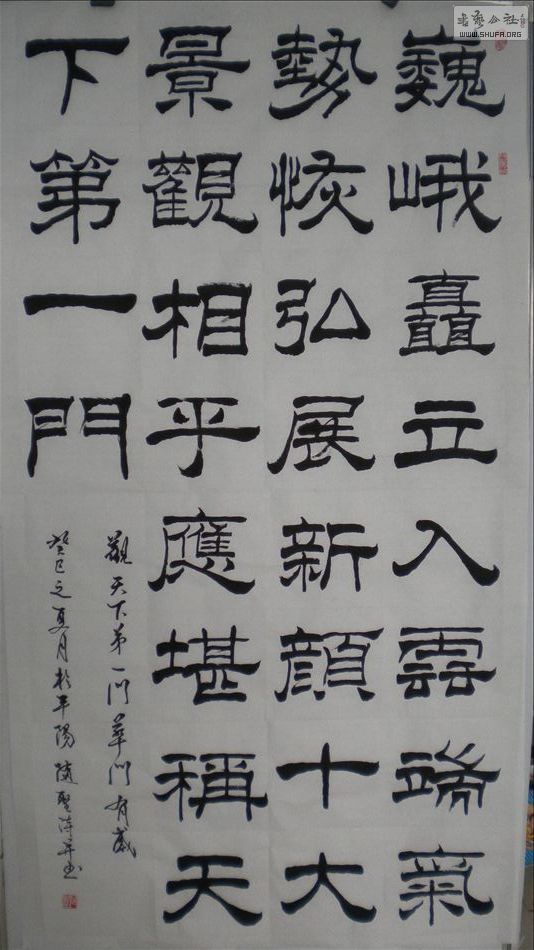 巍峨矗立入雲端氣
勢恢弘展新顔十大
景觀相乎應堪稱天
下第一門
觀天下第一門華門有感
癸巳之夏月於平陽隨聖詩並书
书艺公社
WWW.SHUFA.ORG